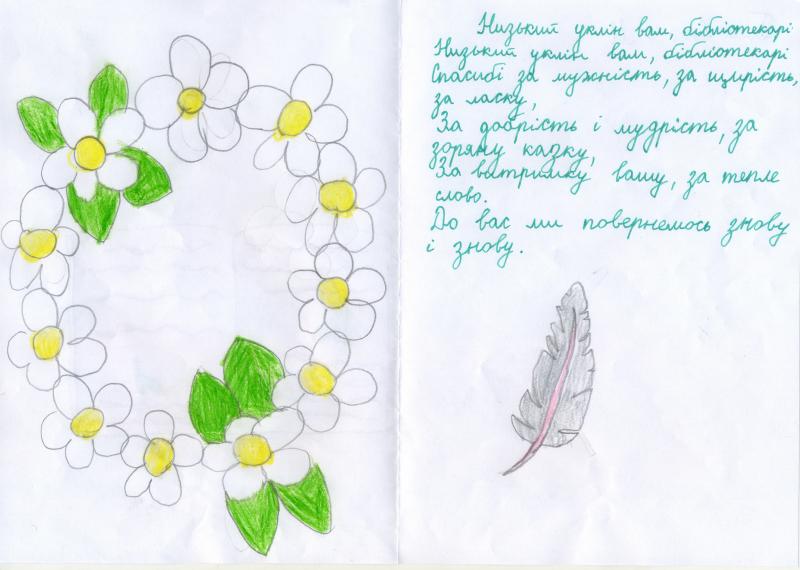 Низький уклін вам, бібліотекарі
Низький уклін вам, бібліотекарі
Спасибі за мужність, за щирість,
за ласку,
За добрість і мудрість, за
зоряну казку,
За витримку вашу, за тепле
слово.
До вас ми повернемось знову
і знову.